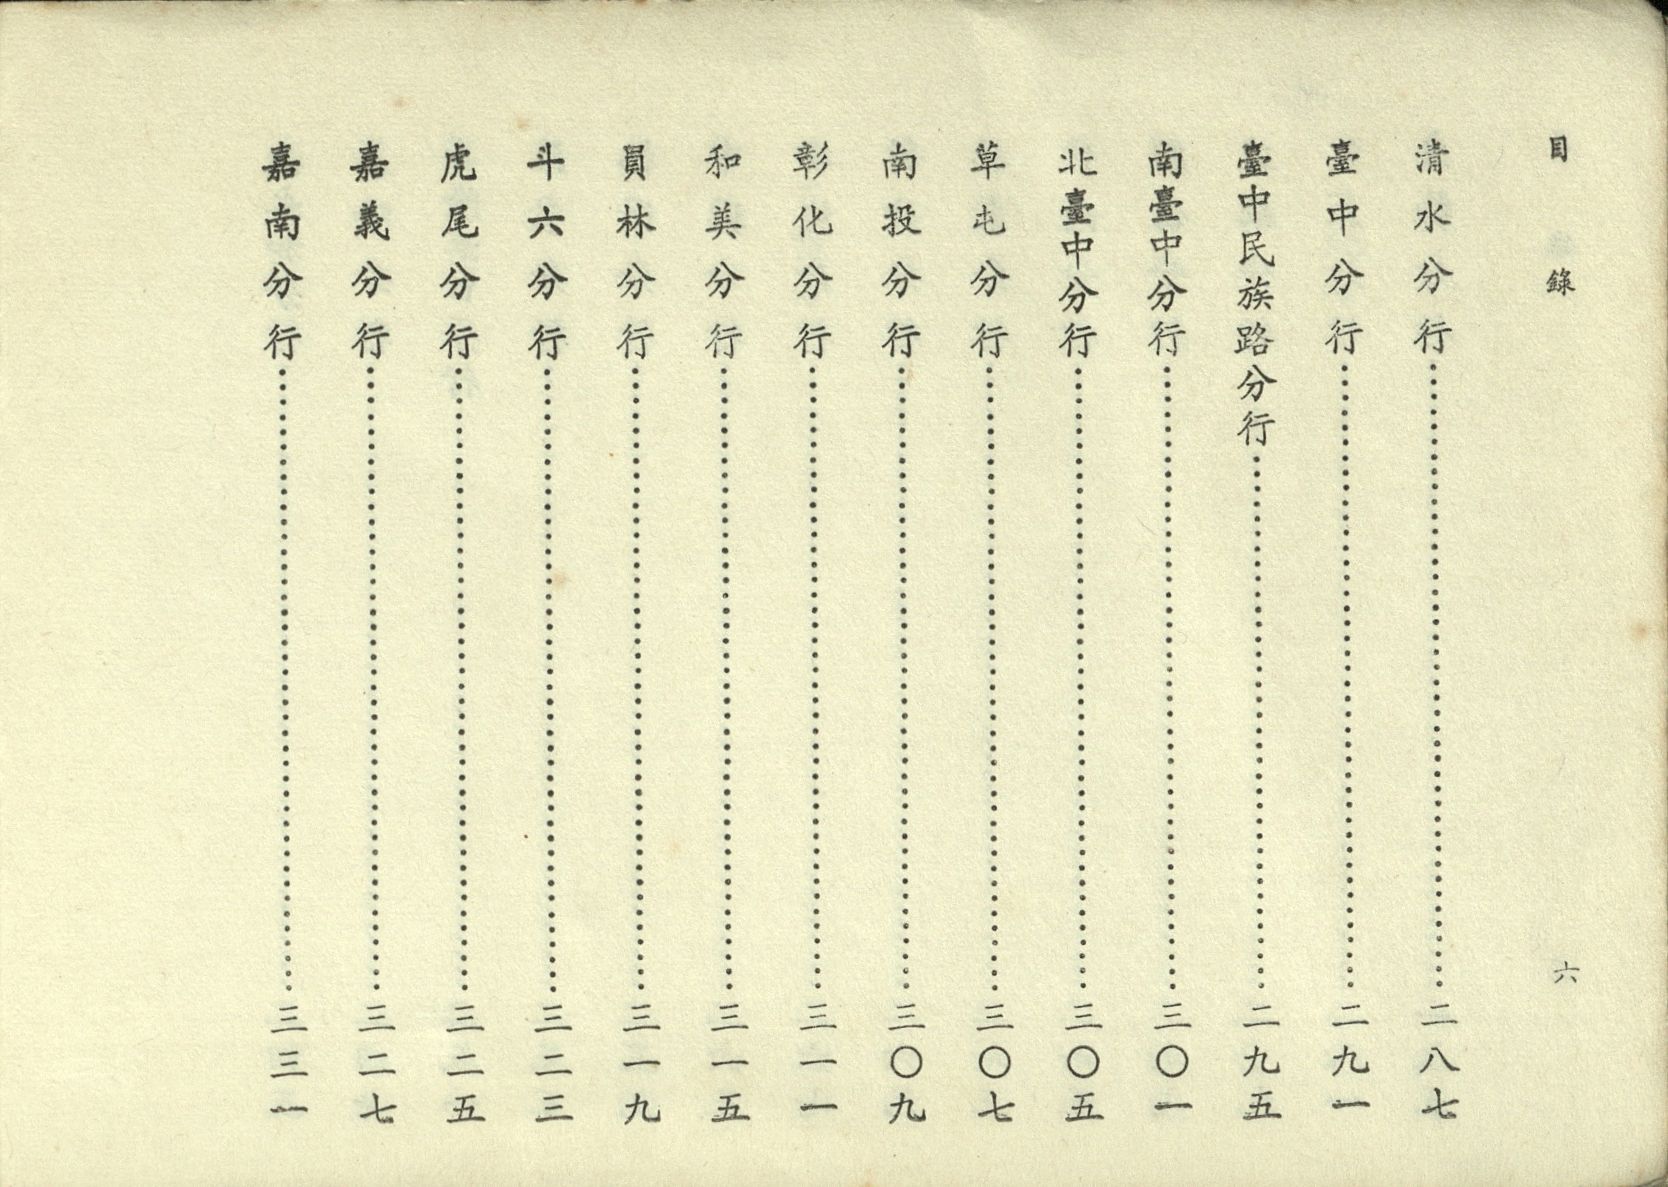 目錄 六
清水分行⋯⋯⋯⋯⋯⋯二八七
臺中分行⋯⋯⋯⋯⋯⋯二九一
臺中民族路分行⋯⋯⋯⋯⋯⋯二九五
南臺中分行⋯⋯⋯⋯⋯⋯三〇一
北臺中分行⋯⋯⋯⋯⋯⋯三〇五
草屯分行⋯⋯⋯⋯⋯⋯三〇七
南投分行⋯⋯⋯⋯⋯⋯三〇九
彰化分行⋯⋯⋯⋯⋯⋯三一一
和美分行⋯⋯⋯⋯⋯⋯三一五
員林分行⋯⋯⋯⋯⋯⋯三一九
斗六分行⋯⋯⋯⋯⋯⋯三二三
虎尾分行⋯⋯⋯⋯⋯⋯三二五
嘉義分行⋯⋯⋯⋯⋯⋯三二七
嘉南分行⋯⋯⋯⋯⋯⋯三三一